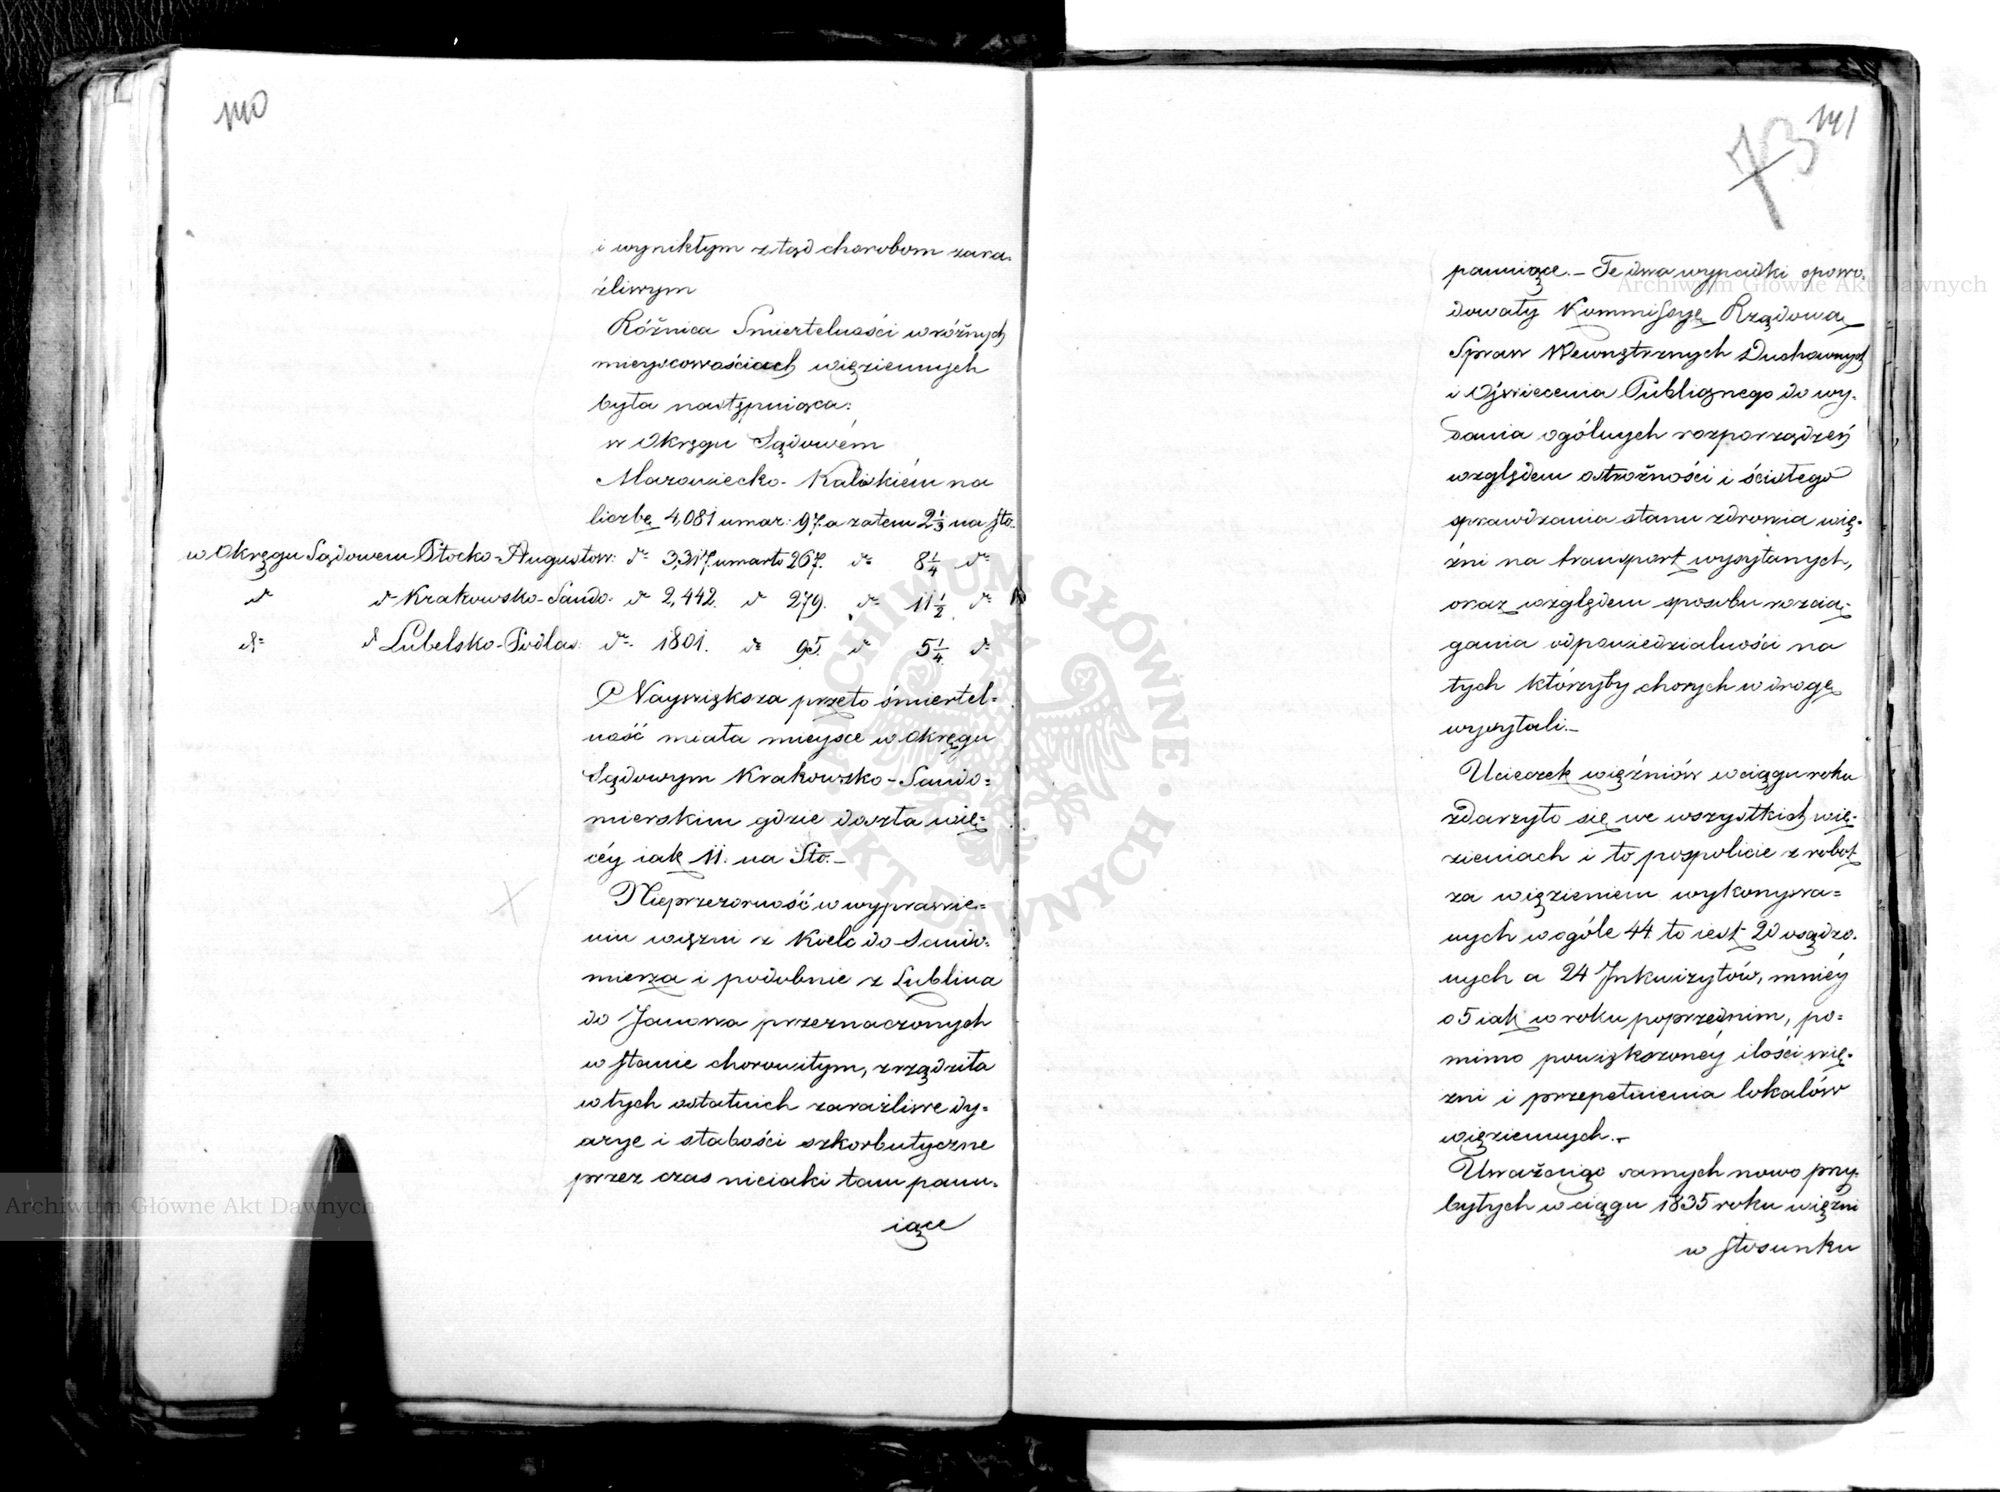 140
i wynikłym ztąd chorobom zara-
źliwym
Różnica Smiertelności w różnych
mieyscowościach więziennych
była następuiąca:
w Okręgu Sądowém
Mazowiecko-Kaliskiém na
liczbę 4,081 umar: 97. a zatem 2 1/3 na sto.
w Okręgu Sądowem Płocko-Augustow: do 3,317. umarło 267. do 8 1/4 do
do do Krakowsko-Sando: do 2,442. do 279. do 11 1/2 do
do do Lubelsko-Podlas: do 1801. do 95. do 5 1/4 do
Naywiększa przeto śmiertel-
ność miała mieysce w Okręgu
Sądowym Krakowsko-Sando-
mierskim gdzie doszła wię-
céy iak 11. na Sto.-
Nieprzezorność w wyprawie-
niu więzni z Kielc do Sando-
mierza i podobnie z Lublina
do Janowa przeznaczonych
w stanie chorowitym, zrządziła
w tych ostatnich zaraźliwe dy-
arye i słabości szkorbutyczne
przez czas nieiaki tam panu-
iące
141
73
panuiące.- Te dwa wypadki spowo-
dowały Kommissyę Rządową
Spraw Wewnętrznych Duchownych
i Oświecenia Publicznego do wy-
dania ogólnych rozporządzeń
względem ostrożności i ścisłego
sprawdzania stanu zdrowia wię-
źni na transport wysyłanych,
oraz względem sposobu rozcią-
gania odpowiedzialności na
tych którzyby chorych w drogę
wysyłali.-
Ucieczek więźniów w ciągu roku
zdarzyło się we wszystkich wię-
zieniach i to pospolicie z robot
za więzieniem wykonywa-
nych w ogóle 44 to iest 20 osądzo-
nych a 24 Inkwizytów, mniéy
o 5 iak w roku poprzednim, po-
mimo powiększonéy ilości wię-
zni i przepełnienia lokalów
więziennych.-
Uważaiąc samych nowo przy-
bytych w ciągu 1835 roku więzni
w stosunku
Archiwum Główne Akt Dawnych
Archiwum Główne Akt Dawnych
ARCHIWUM GŁÓWNE AKT DAWNYCH